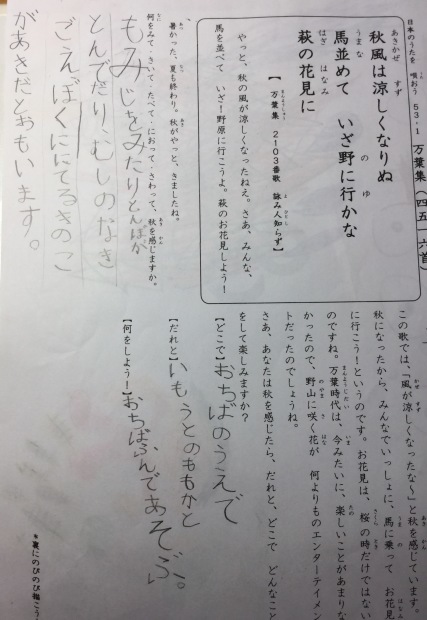 日本のうたを 唄おう 53-1 万葉集(四五一六首)
秋風は涼しくなりぬ
馬並めて いざ野に行かな
萩の花見に
【 万葉集 2103番歌 詠み人知らず 】
やっと、秋の風が涼しくなったねえ。さあ、みんな、
馬を並べて いざ!野原に行こうよ。萩のお花見しよう!
暑かった、夏も終わり。秋がやっと、きましたね。
何をみて・きいて・たべて・におって・さわって、秋を感じますか。
もみじをみたりとんぼが
とんでたりむしのなき
ごえぼくににてるきのこ
があきだとおもいます。
この歌では、「風が涼しくなったな~」と秋を感じています。
秋になったから、みんなでいっしょに、馬に乗って お花見
に行こう!というのです。お花見は、桜の時だけではない
のですね。万葉時代は、今みたいに、楽しいことがあまりな
かったので、野山に咲く花が 何よりものエンターテイメン
トだったのでしょうね。
さあ、あなたは秋を感じたら、だれと、どこで どんなこと
をして楽しみますか?
【どこで】おちばのうえで
【だれと】いもうとのももかと
【何をしよう!】おちばふんであそぶ。
*裏にのびのび描こう